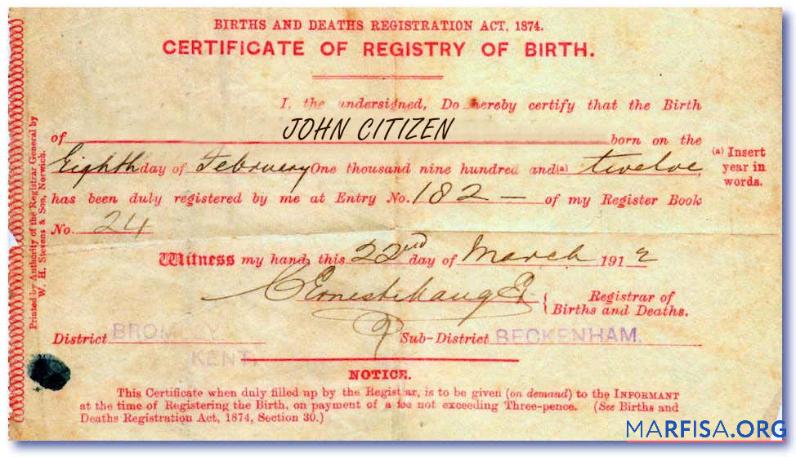 BIRTHS AND DEATHS REGISTRATION ACT, 1874.
CERTIFICATE OF REGISTRY OF BIRTH.
I, the undersigned, Do hereby certify that the Birth
of JOHN CITIZEN born on the
Eighth day of February One thousand nine hundred and (a) twelve
(a) Insert
year in
words.
has been duly registered by me at Entry No. 182 — of my Register Book
No. 24
Witness my hand, this 22nd day of March 1912
Registrar of
Births and Deaths.
District BROMLEY Sub-District BECKENHAM.
KENT.
NOTICE.
This Certificate when duly filled up by the Registrar, is to be given (on demand) to the INFORMANT
at the time of Registering the Birth, on payment of a fee not exceeding Three-pence. (See Births and
Deaths Registration Act, 1874, Section 30.)
Printed by Authority of the Registrar General by
W. H. Stevens & Son, Norwich.
MARFISA.ORG